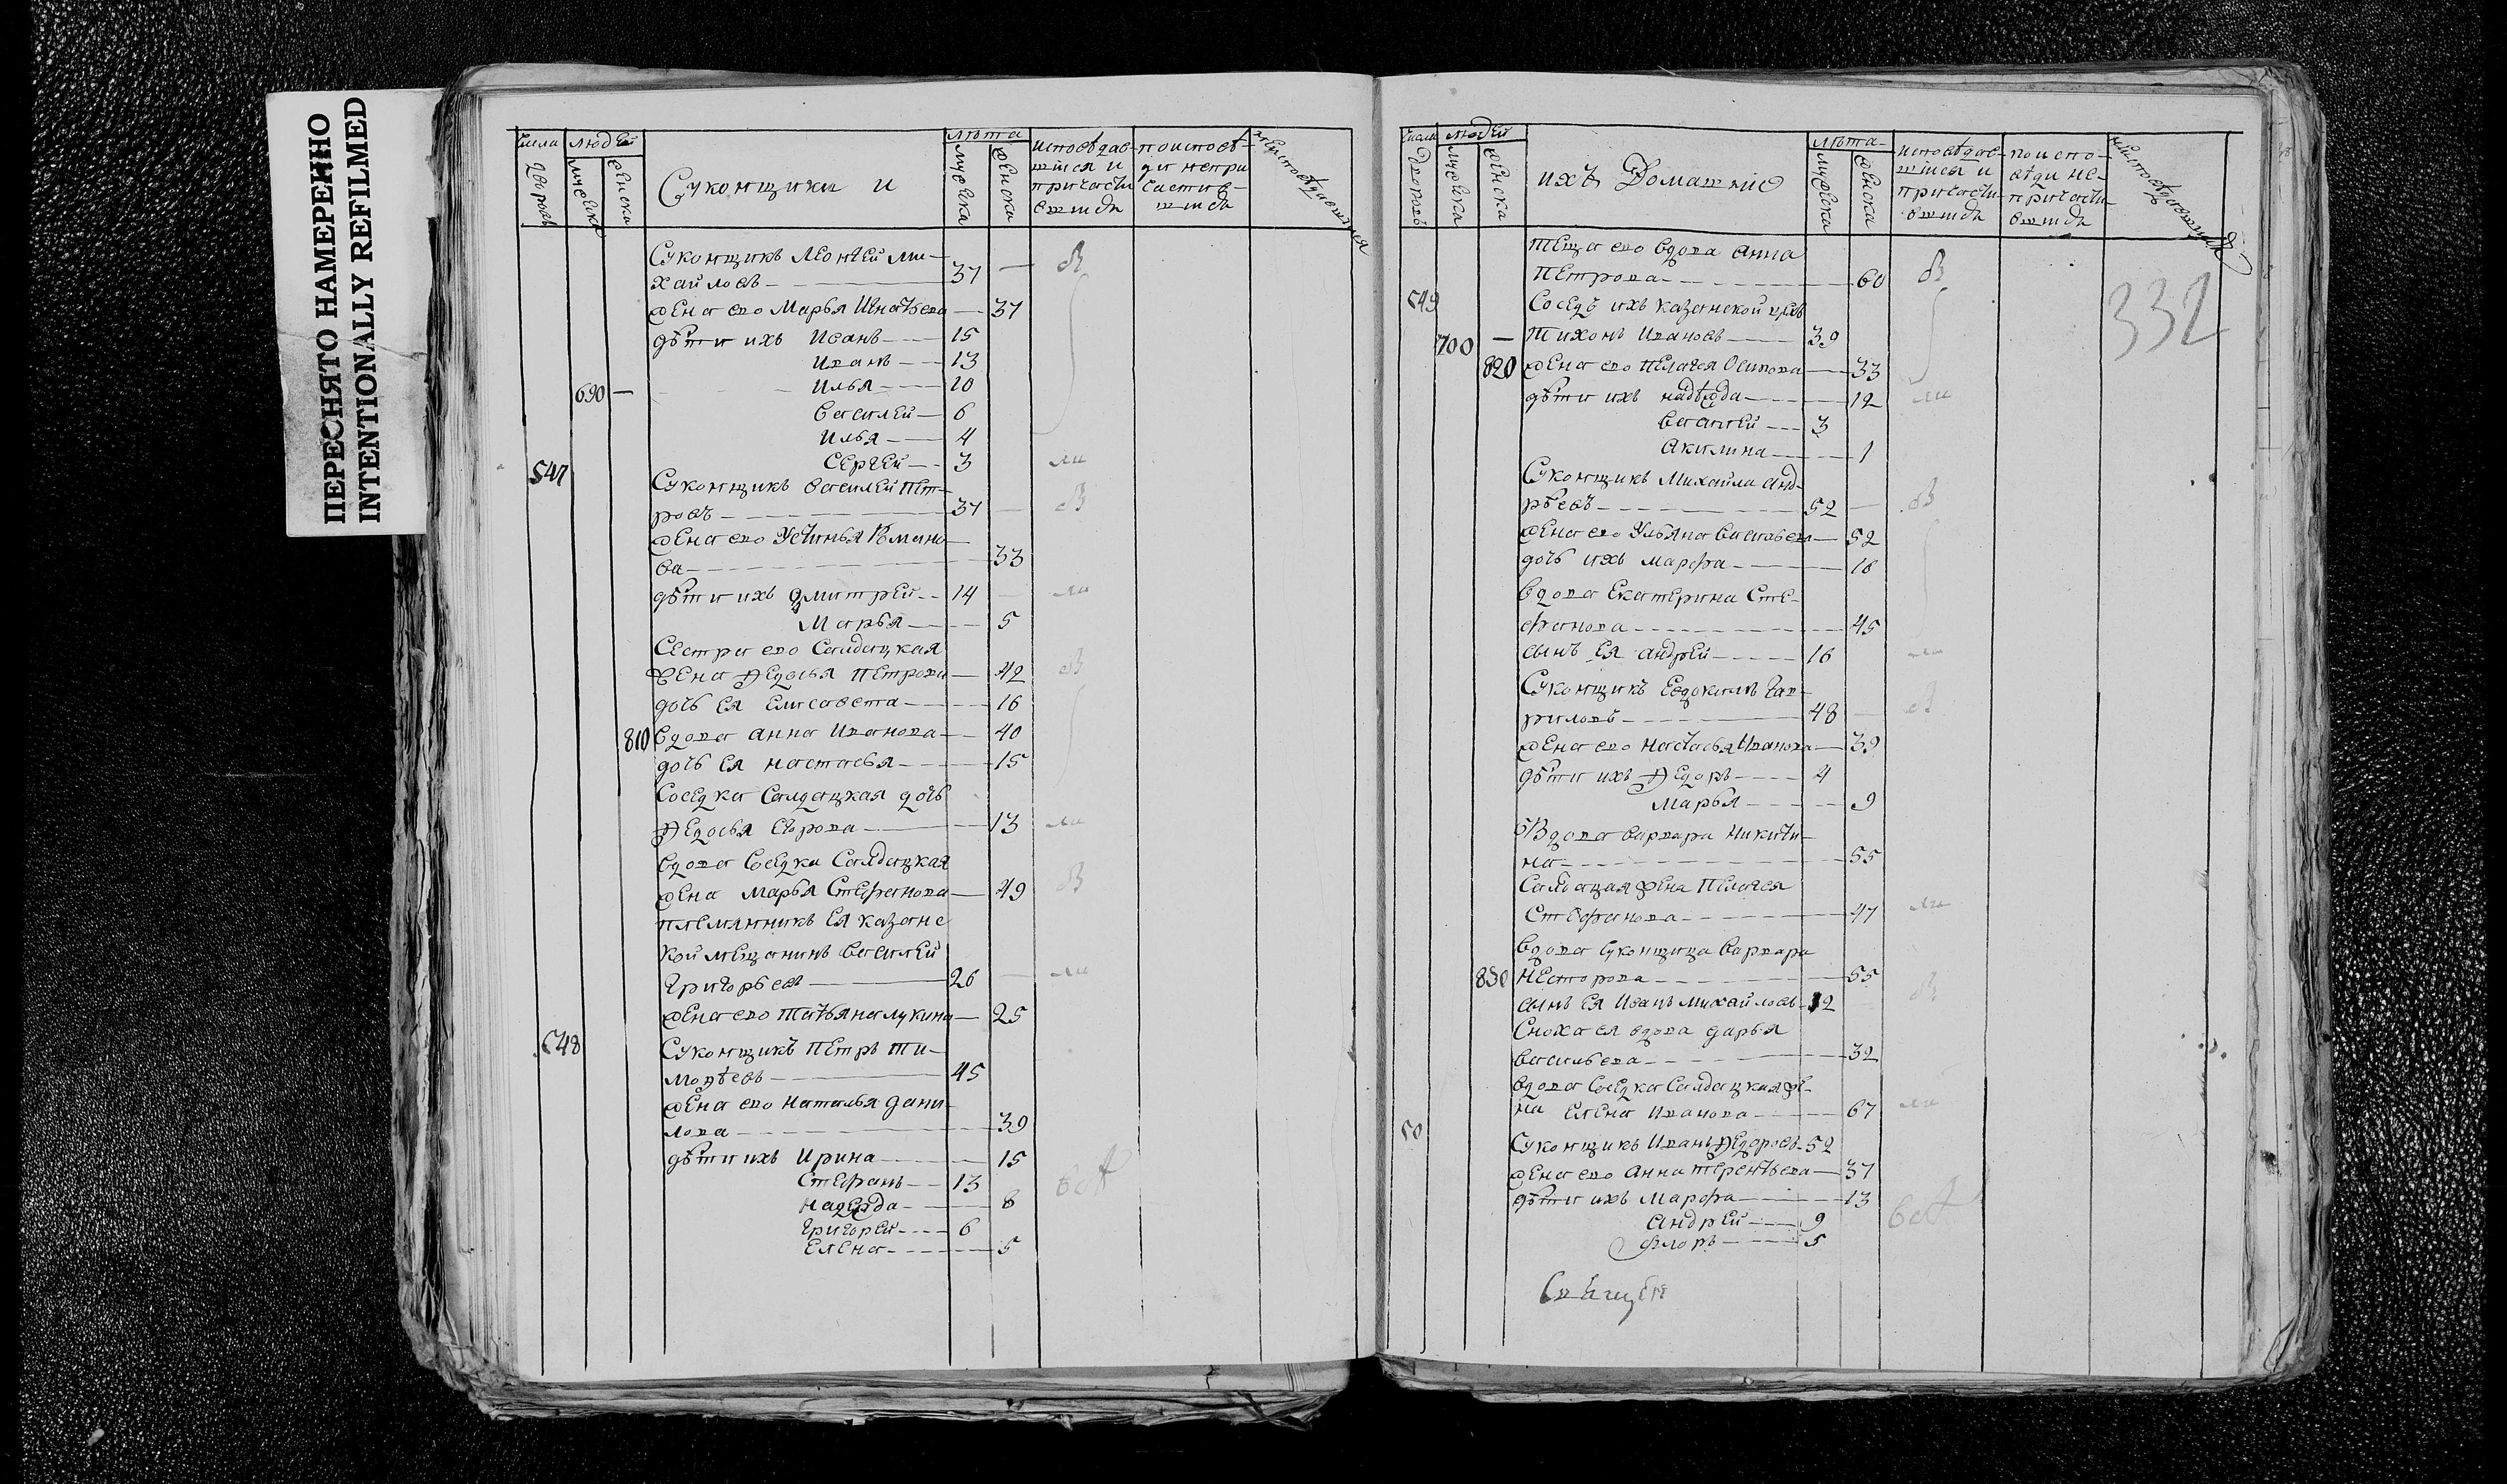 ПЕРЕСНЯТО НАМЕРЕННО
INTENTIONALLY REFILMED
Числа людей
дворовъ мужеска женска
Суконщики и
лѣта
мужеска женска
исповѣдав-
шїися и
причасти
вшихся
по исповѣ-
ди непри
частив-
шихся
Суконщикъ Леонтей Ми-
хайловъ 37
жена ево Марья Игнатьева 37
дѣти ихъ Иванъ 15
Иванъ 13
690 Илья 10
Василей 6
Илья 4
Сергей 3
547
Суконщикъ Василей Пет-
ровъ 37
жена ево Устинья Романо
ва 33
дѣти ихъ Дмитрей 14
Марья 5
Сестра ево Салдацкая
жена Ѳедосья Петрова 42
дочь ея Елисавета 16
810 вдова Анна Иванова 40
дочь ея Настасья 15
Соседка Салдацкая дочь
Ѳедосья 13
вдова Соседка Салдацкая
жена Марья Стефанова 49
племянникъ ея казанс
кой мещанинъ Василей
Григорьевъ 26
жена ево Татьяна Лукина 25
548 Суконщикъ Петръ Ти-
моѳѣевъ 45
жена ево Наталья Дани-
лова 39
дѣти ихъ Ирина 15
Стефанъ 13
Надежда 8
Григорей 6
Елена 5
Числа людей
дворовъ мужеска женска
ихъ Домашнїе
лѣта
мужеска женска
исповѣдав-
шїися и
причасти-
вшихся
по испо-
вѣди не-
причасти-
вшихся
332
теща ево вдова Анна
Петрова 60
549 Соседъ ихъ казанской
700 Тихонъ Ивановъ 39
820 жена ево Пелагея Осипова 33
дѣти ихъ Надѣжда 12
Василей 3
Акилина 1
Суконщикъ Михайла Анд-
рѣевъ 52
жена ево Ульяна Васильева 52
дочь ихъ Марфа 16
вдова Екатерина Сте-
фанова 45
сынъ ея Андрей 16
Суконщикъ Евдокимъ Гав-
риловъ 48
жена ево Настасья Иванова 39
дѣти ихъ Ѳедоръ 4
Марья 9
Вдова Варвара Никити-
на 55
Салдацкая жена Пелагея
Стефанова 47
вдова суконщица Варвара
830 Несторова 55
сынъ ея Иванъ Михайловъ 12
Сноха ея вдова Дарья
Васильева 32
вдова Соседка Салдацкая же-
на Елена Иванова 67
50
Суконщикъ Иванъ Ѳедоровъ 52
жена ево Анна Терентьева 37
дѣти ихъ Марфа 13
Андрей 9
Флоръ 5